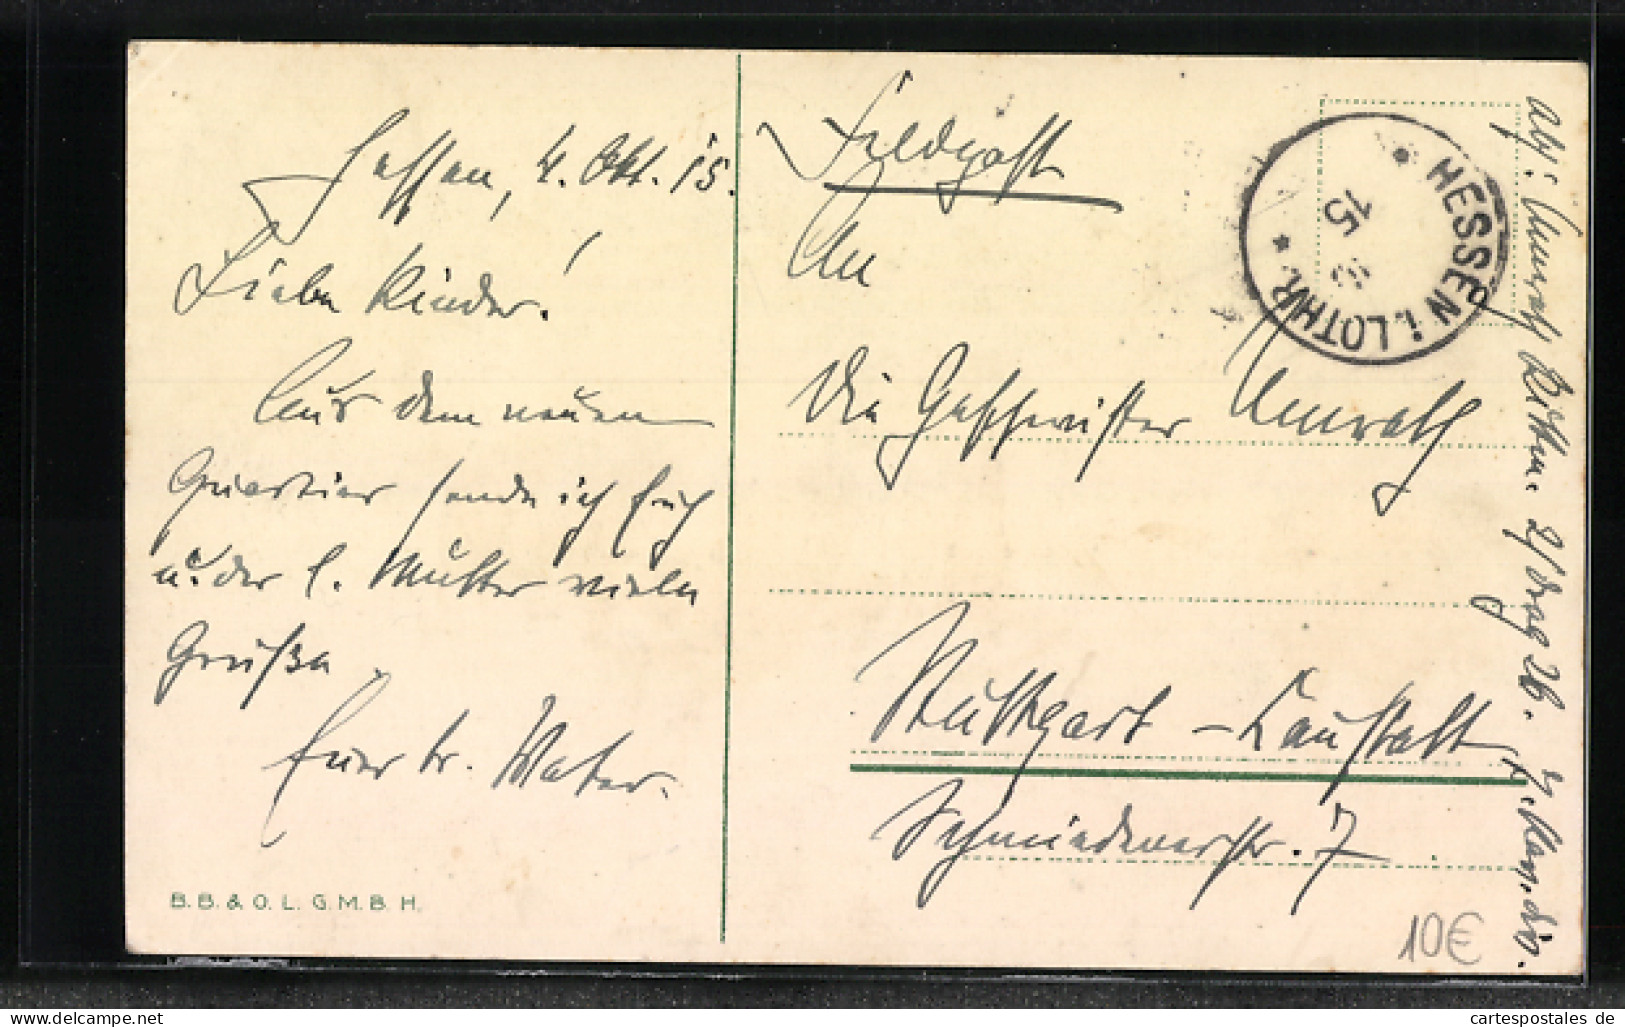 Hessen, 4. Okt. 15.
Liebe Kinder!
Aus dem neuen
Quartier sende ich Euch
u. der l. Mutter viele
Grüße.
Euer tr. Vater.
B. B. & O. L. G. M. B. H.
Feldpost
An
die Geschwister Umrath
Stuttgart - Cannstatt
Schmidenerstr. 7
HESSEN i. LOTHR.
15
Abs: Umrath
10€
cartespostales de